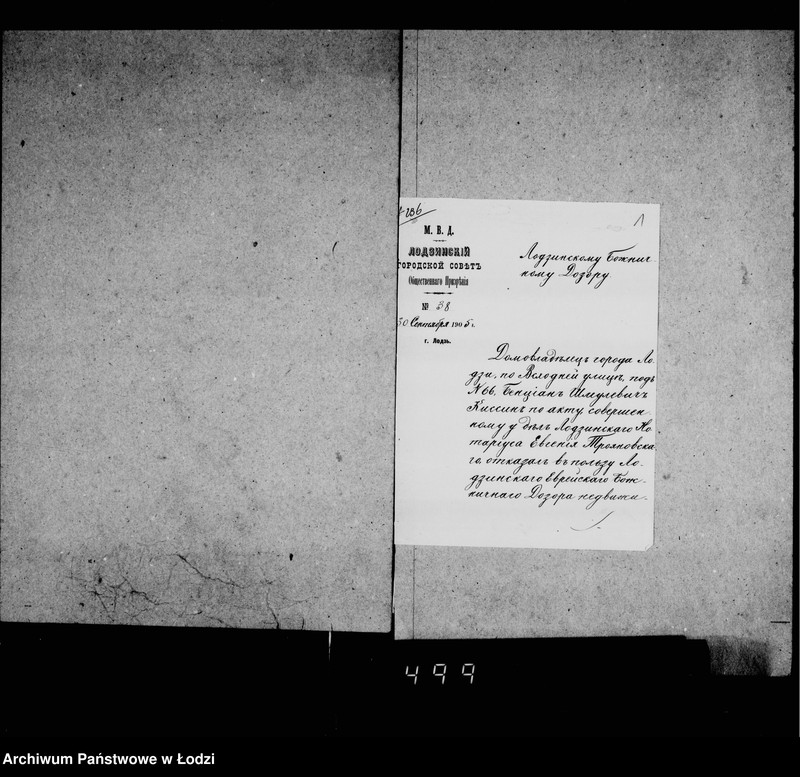 286
1
М. В. Д.
ЛОДЗИНСКІЙ
ГОРОДСКОЙ СОВѢТЪ
Общественнаго Призрѣнія
№ 38
30 Сентября 1905 г.
г. Лодзь.
Лодзинскому Божнич-
ному Дозору.
Домовладѣлецъ города Ло-
дзи, по Всходней улицѣ, подъ
N 66, Бенціанъ Шмулевичъ
Киссинъ по акту совершен-
ному у дѣлъ Лодзинскаго Но-
таріуса Евгенія Трояновска-
го, отказалъ въ пользу Ло-
дзинскаго Еврейскаго Бож-
ничнаго Дозора недвижи-
499
Archiwum Państwowe w Łodzi